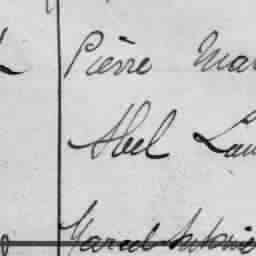 Pierre Mar
Abel Lau
Marcel Antoine